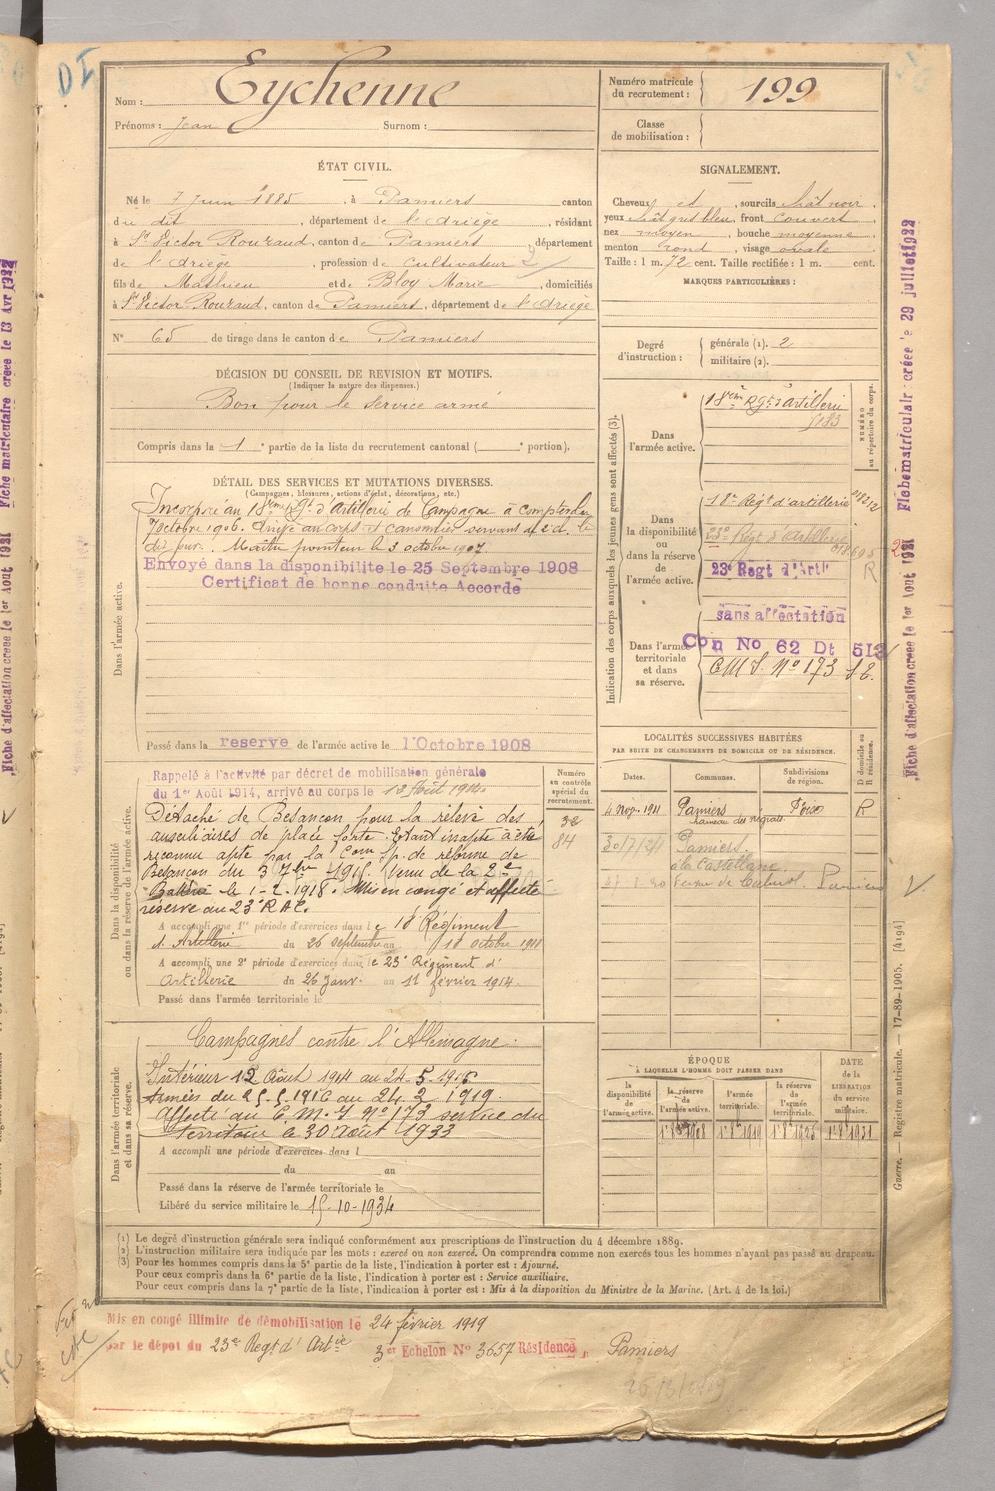 D I
Nom : Eychenne
Prénoms : Jean Surnom :
Numéro matricule du recrutement : 199
Classe de mobilisation :
ÉTAT CIVIL.
Né le 7 Juin 1885, à Pamiers canton
du dit, département de l'Ariège, résidant
à St Victor Rouzaud, canton de Pamiers, département
de l'Ariège, profession de cultivateur
fils de Mathieu et de Bloy Marie, domiciliés
à St Victor Rouzaud, canton de Pamiers, département de l'Ariège
N° 65 de tirage dans le canton de Pamiers
SIGNALEMENT.
Cheveux et, sourcils chât noir,
yeux chât gris bleu, front couvert
nez moyen, bouche moyenne
menton rond, visage ovale
Taille : 1 m. 72 cent. Taille rectifiée : 1 m. cent.
MARQUES PARTICULIÈRES :
Degré d'instruction :
générale (1). 2
militaire (2).
DÉCISION DU CONSEIL DE REVISION ET MOTIFS.
(Indiquer la nature des dispenses.)
Bon pour le service armé
Compris dans la 1e partie de la liste du recrutement cantonal ( e portion).
DÉTAIL DES SERVICES ET MUTATIONS DIVERSES.
(Campagnes, blessures, actions d'éclat, décorations, etc.)
Dans l'armée active.
Incorporé au 18ème Rgt d'Artillerie de Campagne à compter du
7 octobre 1906. Arrivé au corps et canonnier servant de 2e cl. le
dit jour. Maître pointeur le 3 octobre 1907
Envoyé dans la disponibilite le 25 Septembre 1908
Certificat de bonne conduite Accordé
Passé dans la reserve de l'armée active le 1 Octobre 1908
Indication des corps auxquels les jeunes gens sont affectés (3).
NUMÉRO au répertoire du corps.
Dans l'armée active.
18ème Rgt d'Artillerie
5183
Dans la disponibilité ou dans la réserve de l'armée active.
18e Régt d'artillerie
23e Régt d'Artillerie
23e Regt d'Art
R
Dans l'armée territoriale et dans sa réserve.
sans affectation
Con No 62 Dt 513
CMJ. N° 173 S.E.
LOCALITÉS SUCCESSIVES HABITÉES
PAR SUITE DE CHANGEMENTS DE DOMICILE OU DE RÉSIDENCE.
Dates. Communes. Subdivisions de région. D domicile ou R résidence.
4 Nov. 1911 Pamiers Foix R
hameau des
Pamiers.
à la Castellane
Ferme de Pamiers
Dans la disponibilité ou dans la réserve de l'armée active.
Numéro au contrôle spécial du recrutement.
84
Rappelé à l'activité par décret de mobilisation générale
du 1er Août 1914, arrivé au corps le 12 Août 1914.
Détaché de Besançon pour la relève des
auxiliaires de place forte. Etant inapte à être
reconnu apte par la Com. Sp. de réforme de
Besançon du 3 7bre 1915. Venu de la 2e
Batterie le 1-2-1918. Mis en congé et affecté
réserve au 23e R.A.C.
A accompli une 1re période d'exercices dans le 18 Régiment
d'Artillerie du 26 septembre au 18 octobre 1911
A accompli une 2e période d'exercices dans le 23e Régiment d'
Artillerie du 26 Janv. au 11 février 1914.
Passé dans l'armée territoriale le
Dans l'armée territoriale et dans sa réserve.
Campagnes contre l'Allemagne.
Intérieur 12 Août 1914 au 24-5-1916
Armées du 25-5-1916 au 24-2-1919.
Affecté au C.M.J N° 173 service du
territoire le 30 Août 1933
A accompli une période d'exercices dans l
du au
Passé dans la réserve de l'armée territoriale le
Libéré du service militaire le 15-10-1934
ÉPOQUE
À LAQUELLE L'HOMME DOIT PASSER DANS
la disponibilité de l'armée active.
la réserve de l'armée active.
l'armée territoriale.
la réserve de l'armée territoriale.
DATE de la LIBÉRATION du service militaire.
(1) Le degré d'instruction générale sera indiqué conformément aux prescriptions de l'instruction du 4 décembre 1889.
(2) L'instruction militaire sera indiquée par les mots : exercé ou non exercé. On comprendra comme non exercés tous les hommes n'ayant pas passé au drapeau.
(3) Pour les hommes compris dans la 5e partie de la liste, l'indication à porter est : Ajourné.
Pour ceux compris dans la 6e partie de la liste, l'indication à porter est : Service auxiliaire.
Pour ceux compris dans la 7e partie de la liste, l'indication à porter est : Mis à la disposition du Ministre de la Marine. (Art. 4 de la loi.)
Mis en congé illimité de démobilisation le 24 février 1919
par le dépot du 23e Regt d'Artie 3er Echelon N° 3657 Résidence Pamiers
Fiche matriculaire créée le 29 juillet 1922
Fiche d'affectation créée le 1er Août 1921
Guerre. — Registre matricule. — 17-89-1905. [4194]
Fiche matriculaire creee le 13 Avr 1922
Fiche d'affectation creee le 1er Aout 1921